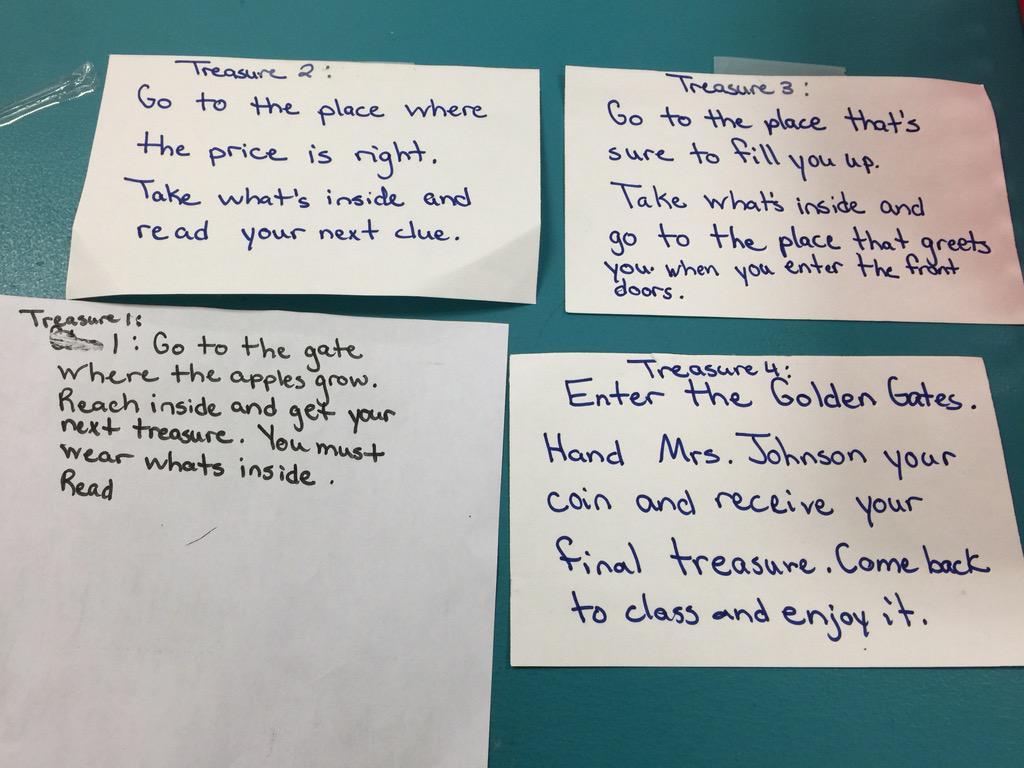 Treasure 2:
Go to the place where
the price is right.
Take what's inside and
read your next clue.
Treasure 3:
Go to the place that's
sure to fill you up.
Take what's inside and
go to the place that greets
you when you enter the front
doors.
Treasure 1:
1: Go to the gate
where the apples grow.
Reach inside and get your
next treasure. You must
wear whats inside.
Read
Treasure 4:
Enter the Golden Gates.
Hand Mrs. Johnson your
coin and receive your
final treasure. Come back
to class and enjoy it.